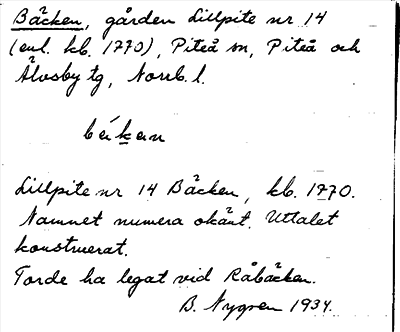 Bäcken, gården Lillpite nr 14
(enl. kb. 1770), Piteå sn, Piteå och
Älvsby tg, Norrb. l.
Lillpite nr 14 Bäcken, kb. 1770.
Namnet numera okänt. Uttalet
konstruerat.
Torde ha legat vid Råbäcken.
B. Nygren 1934.